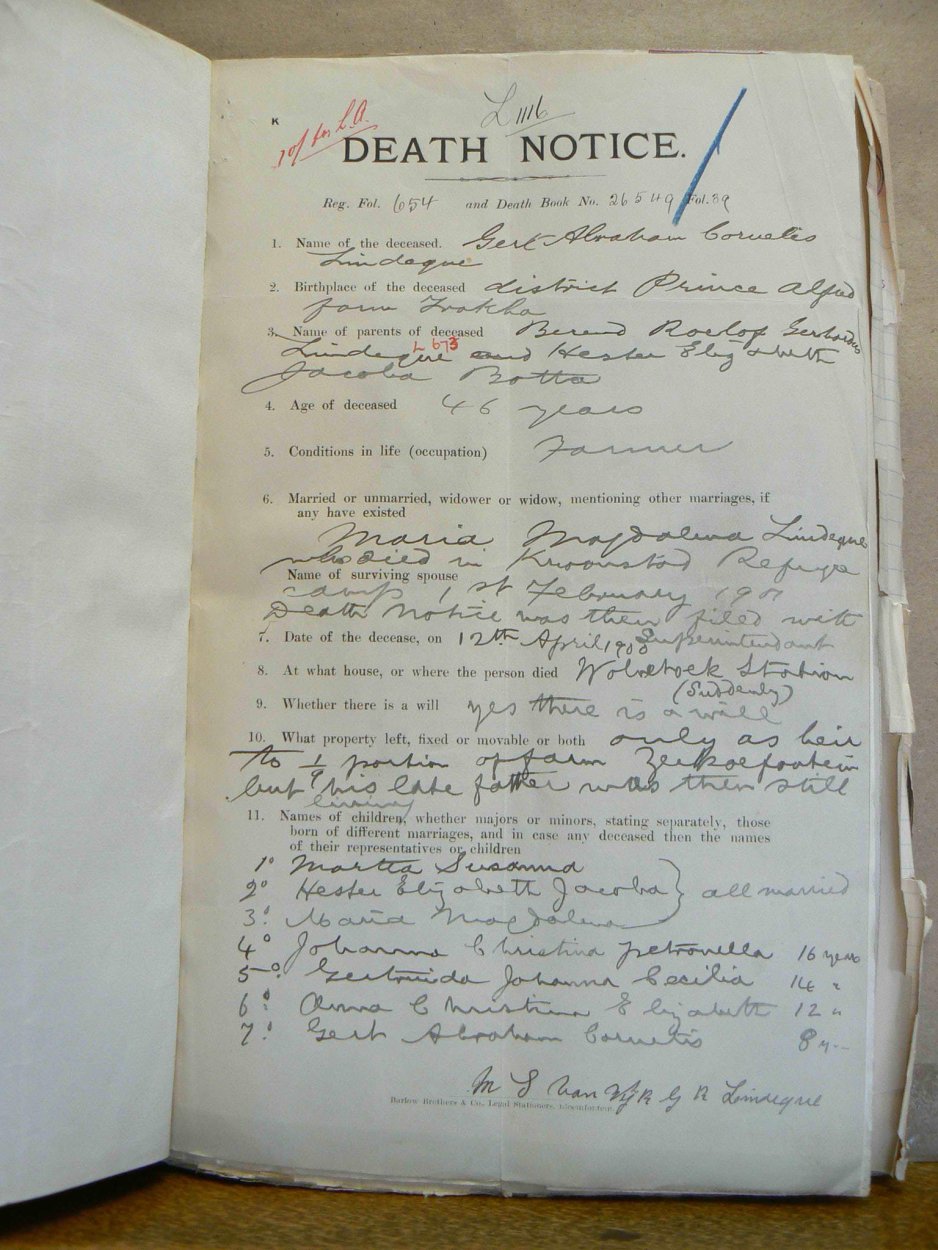 L 1116
K
DEATH NOTICE.
Reg. Fol. 654 and Death Book No. 26549 Fol. 39
1. Name of the deceased. Gert Abraham Cornelis
Lindeque
2. Birthplace of the deceased district Prince Alfred
farm
3. Name of parents of deceased Berend Roelof Gerhardus
L 673
Lindeque and Hester Elizabeth
Jacoba Botta
4. Age of deceased 46 years
5. Conditions in life (occupation) Farmer
6. Married or unmarried, widower or widow, mentioning other marriages, if
any have existed
Maria Magdalena Lindeque
who died in Kroonstad Refuge
Name of surviving spouse
camp 1st February 190
Death Notice was then filed with
Superintendant
7. Date of the decease, on 12th April 1900
8. At what house, or where the person died Wolvehoek Station
(Suddenly)
9. Whether there is a will yes there is a will
10. What property left, fixed or movable or both only as heir
to 1/9 portion of farm Zeekoefontein
but his late father was then still
living
11. Names of children, whether majors or minors, stating separately, those
born of different marriages, and in case any deceased then the names
of their representatives or children
1° Martha Susanna
2° Hester Elizabeth Jacoba } all married
3° Maria Magdalena
4° Johanna Christina Petronella 16 years
5° Gertruida Johanna Cecilia 14 "
6° Anna Christina Elizabeth 12 "
7° Gert Abraham Cornelis 8 "
M S van Wyk G R Lindeque
Barlow Brothers & Co. Legal Stationers, Bloemfontein.